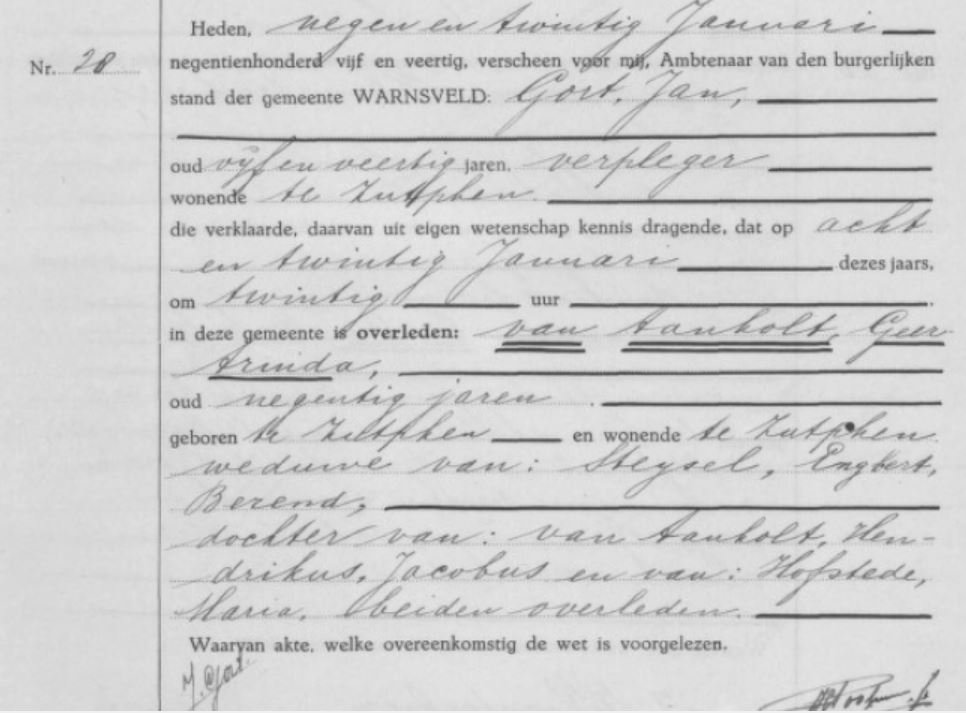 Heden, negen en twintig Januari
Nr. 28
negentienhonderd vijf en veertig, verscheen voor mij, Ambtenaar van den burgerlijken
stand der gemeente WARNSVELD: Gort, Jan,
oud vijf en veertig jaren, verpleger
wonende te Zutphen
die verklaarde, daarvan uit eigen wetenschap kennis dragende, dat op acht
en twintig Januari dezes jaars,
om twintig uur
in deze gemeente is overleden: van Aanholt, Geer
trinda,
oud negentig jaren
geboren te Zutphen en wonende te Zutphen
weduwe van: Steysel, Engbert,
Berend,
dochter van: van Aanholt, Hen-
drikus, Jacobus en van: Hofstede,
Maria, beiden overleden.
Waarvan akte, welke overeenkomstig de wet is voorgelezen.
J. Gort.